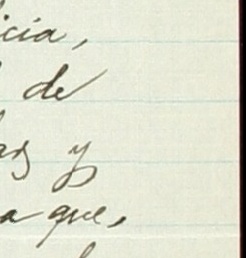 icia,
de
y
a que,